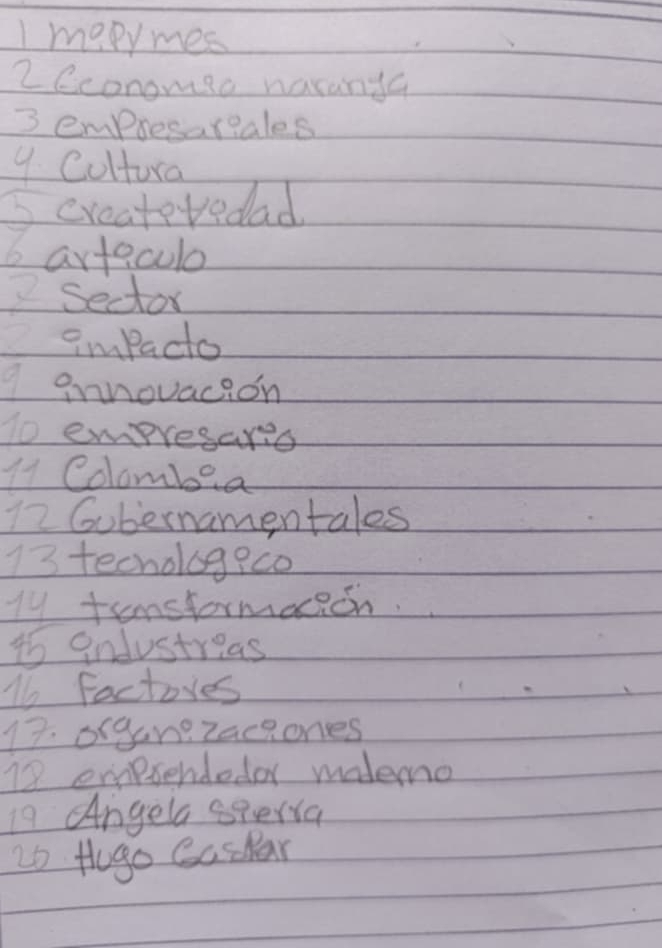 1 mipymes
2 Economia naranja
3 empresariales
4 Cultura
5 creatividad
6 articulo
7 Sector
impacto
9 innovación
10 empresario
11 Colombia
12 Gubernamentales
13 tecnologico
14 transformación
15 industrias
16 Factores
17. organizaciones
18 emprendedor
19 Angela Sierra
20 Hugo Gaspar